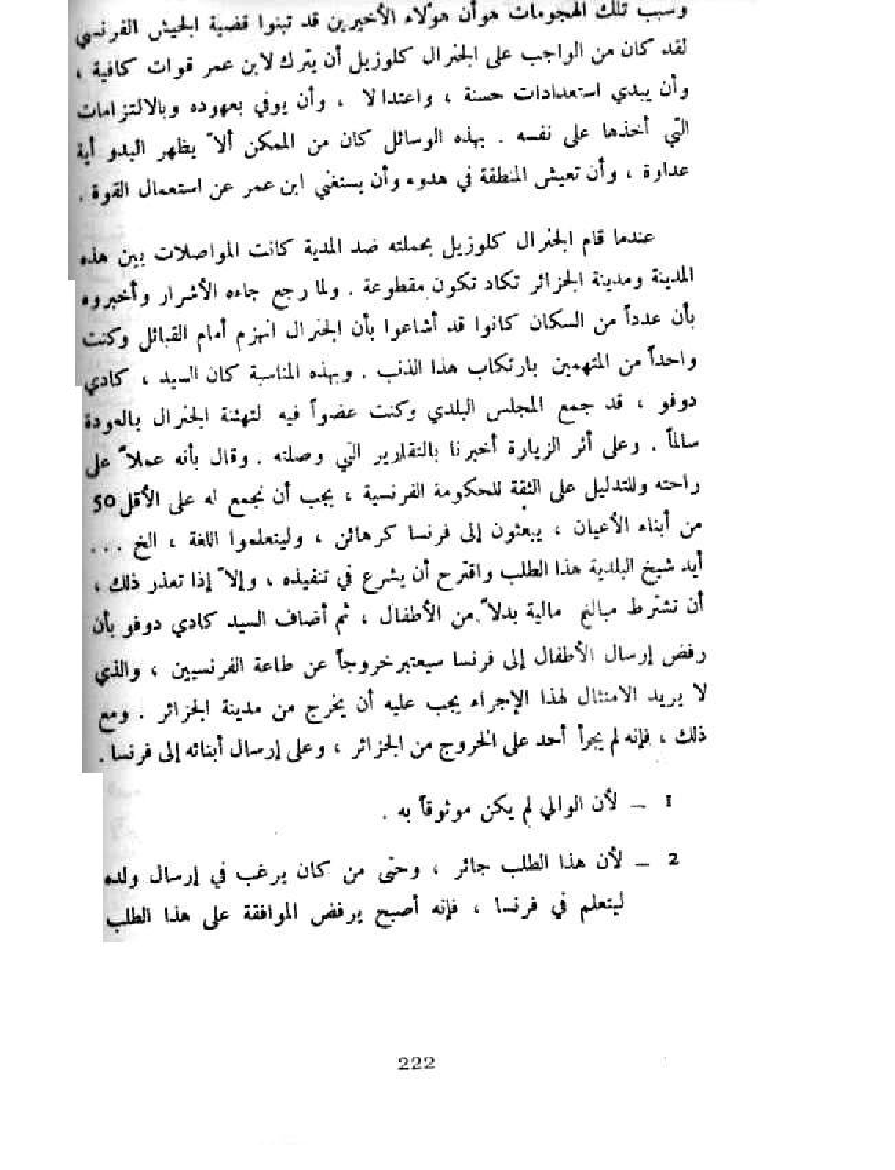 وسبب تلك الهجومات هوأن هؤلاء الأخيرين قد تبنوا قضية الجيش الفرنسي
لقد كان من الواجب على الجنرال كلوزيل أن يترك لابن عمر قوات كافية ،
وأن يبدي استعدادات حسنة ، واعتدالا ، وأن يوفي بعهوده وبالالتزامات
التي أخذها على نفسه . بهذه الوسائل كان من الممكن ألاّ يظهر البدو أية
عدارة ، وأن تعيش المنطقة في هدوء وأن يستغني ابن عمر عن استعمال القوة .
عندما قام الجنرال كلوزيل بحملته ضد المدية كانت المواصلات بين هذه
المدينة ومدينة الجزائر تكاد تكون مقطوعة . ولما رجع جاءه الأشرار وأخبروه
بأن عدداً من السكان كانوا قد أشاعوا بأن الجنرال انهزم أمام القبائل وكنت
واحداً من المتهمين بارتكاب هذا الذنب . وبهذه المناسبة كان السيد ، كادي
دوفو ، قد جمع المجلس البلدي وكنت عضواً فيه لتهنئة الجنرال بالعودة
سالماً . وعلى أثر الزيارة أخبرنا بالتقارير التي وصلته . وقال بأنه عملاً على
راحته وللتدليل على الثقة للحكومة الفرنسية ، يجب أن نجمع له على الأقل 50
من أبناء الأعيان ، يبعثون إلى فرنسا كرهائن ، وليتعلموا اللغة ، الخ ...
أيد شيخ البلدية هذا الطلب واقترح أن يشرع في تنفيذه ، وإلاّ إذا تعذر ذلك ،
أن تشترط مبالغ مالية بدلاً من الأطفال ، ثم أضاف السيد كادي دوفو بأن
رفض إرسال الأطفال إلى فرنسا سيعتبر خروجاً عن طاعة الفرنسيين ، والذي
لا يريد الامتثال لهذا الإجراء يجب عليه أن يخرج من مدينة الجزائر . ومع
ذلك ، فإنه لم يجرأ أحد على الخروج من الجزائر ، وعلى إرسال أبنائه إلى فرنسا .
1 – لأن الوالي لم يكن موثوقاً به .
2 – لأن هذا الطلب جائر ، وحتى من كان يرغب في إرسال ولده
ليتعلم في فرنسا ، فإنه أصبح يرفض الموافقة على هذا الطلب
222